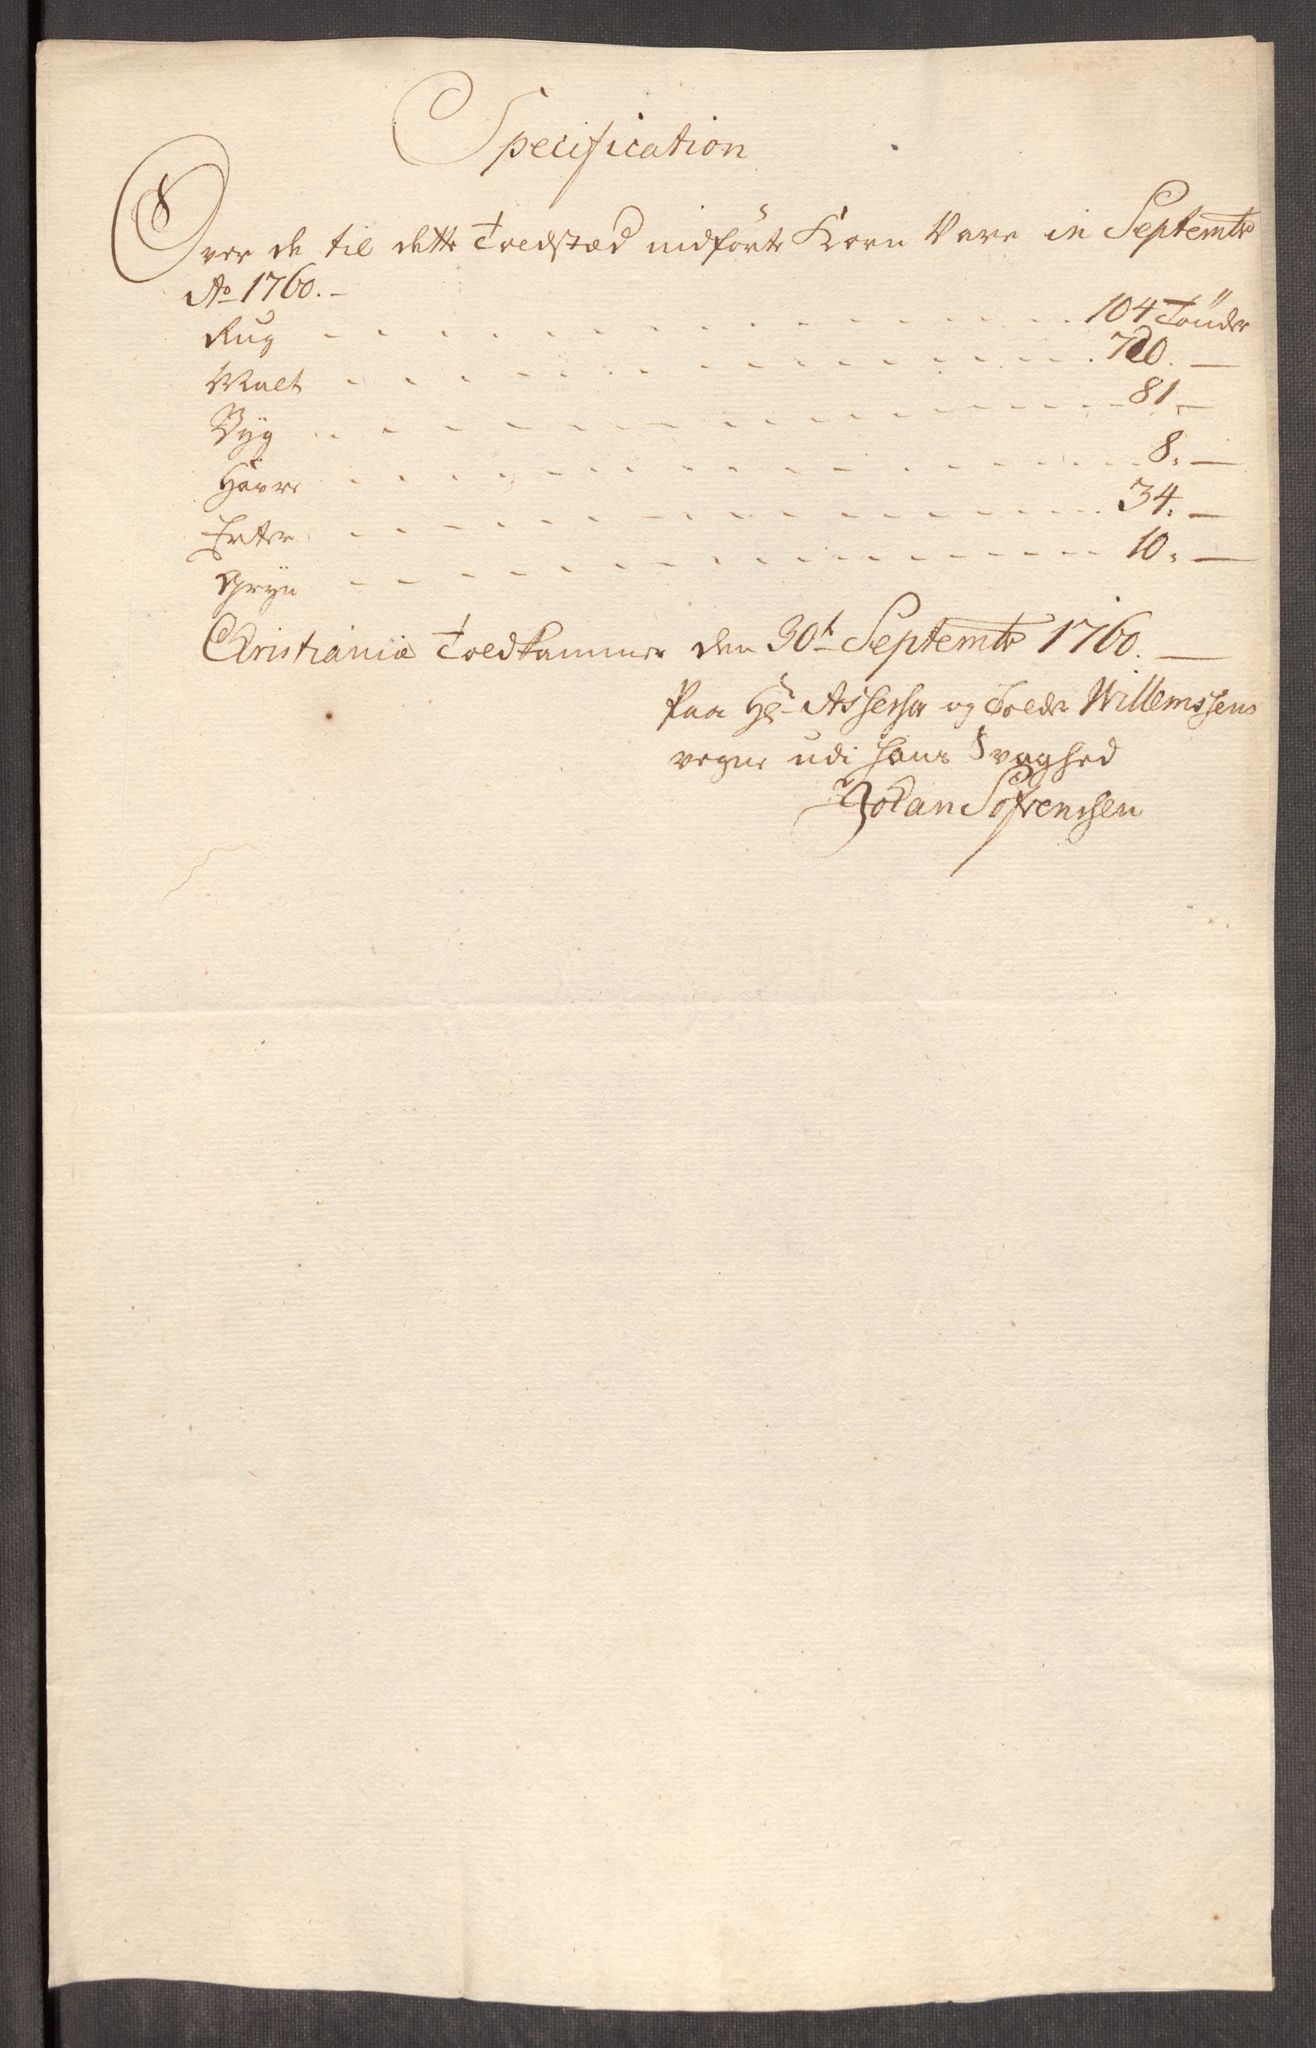 Specification
Over de til dette Toldstæd indførte Korn Vare in Septembr
Ao 1760.
Rug - - - 104 Tønder
Malt - - - 720. —
Byg - - - 81. —
Havre - - - 8. —
Erter - - - 34. —
Gryn - - - 10. —
Christiania Toldkammer den 30t Septembr 1760. —
Paa Hr Assessor og Tolder Willemssens
vegne udi hans Svaghed
Johan Sofrensen